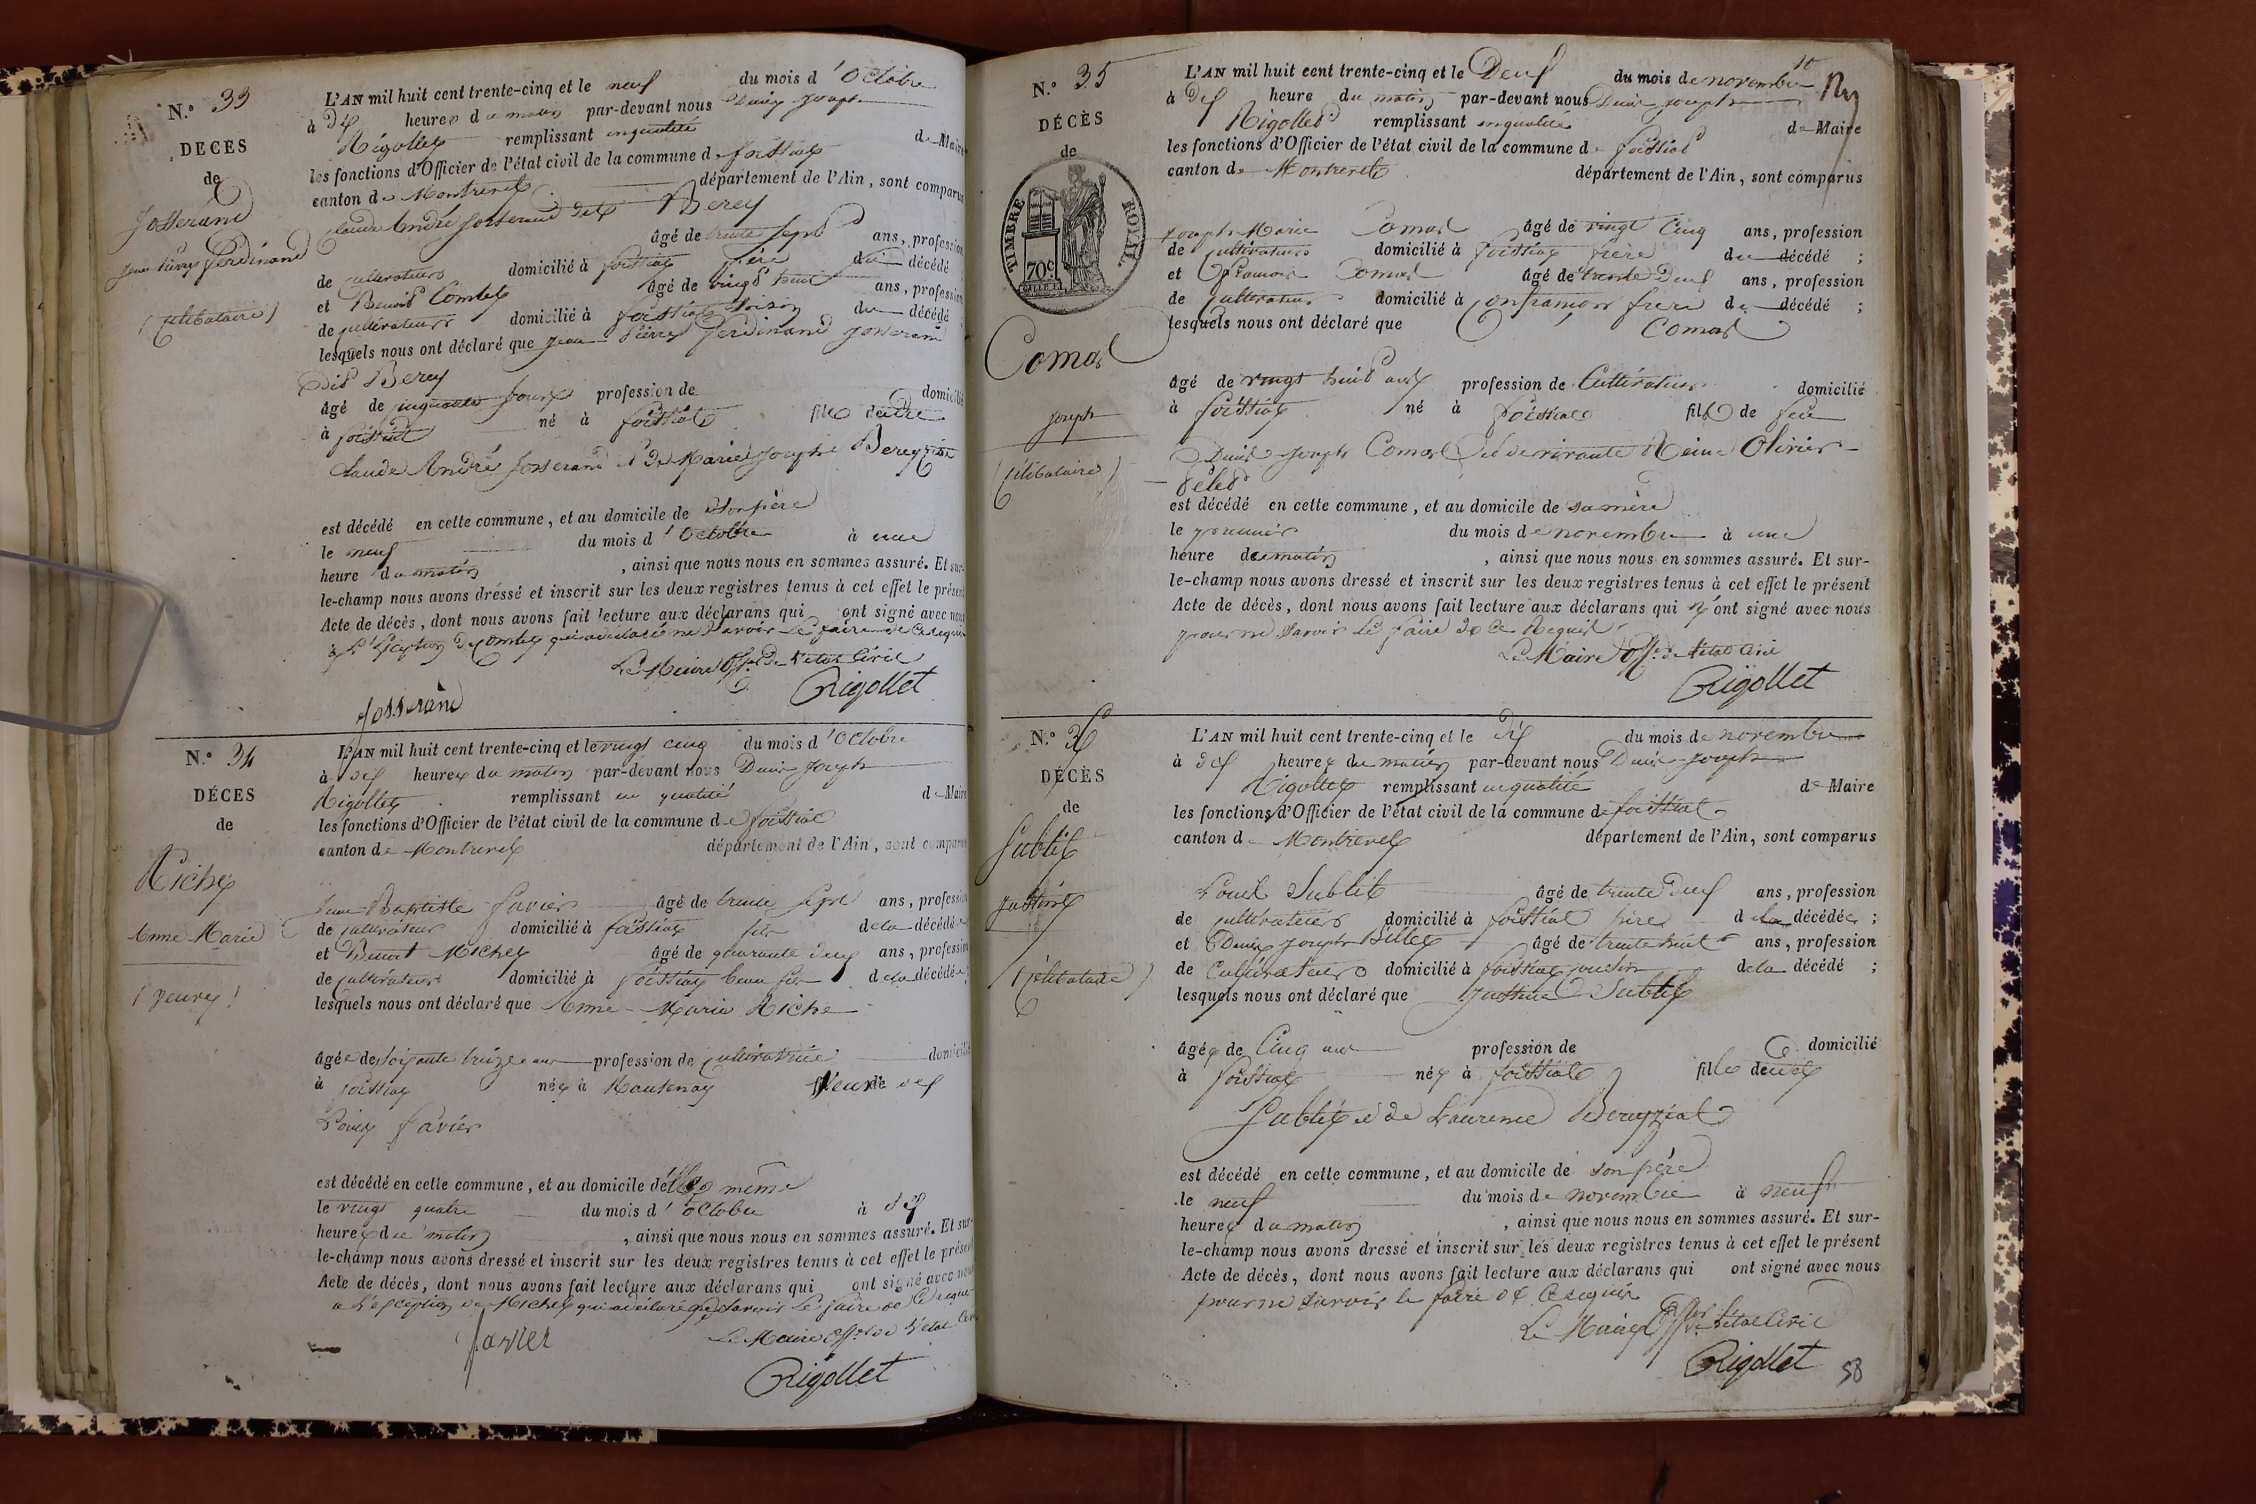 N.° 33
DECES
de
Josserand
Jean Pierre Ferdinand
(célibataire)
L'AN mil huit cent trente-cinq et le neuf du mois d'Octobre
à dix heures du matin par-devant nous Denis Joseph
Rigollet remplissant en qualité de Maire
les fonctions d'Officier de l'état civil de la commune de foissiat
canton de Montrevel département de l'Ain, sont comparus
Claude André Josserand dit Berey
âgé de trente sept ans, profession
de cultivateur domicilié à foissiat père du décédé
et Benoit Comtet âgé de vingt huit ans, profession
de cultivateur domicilié à foissiat voisin du décédé
lesquels nous ont déclaré que Jean Pierre Ferdinand Josserand
dit Berey
âgé de cinquante jours profession de domicilié
à foissiat né à foissiat fils dudit
Claude André Josserand et de Marie Josephe Bereyziat
est décédé en cette commune, et au domicile de son père
le neuf du mois d'Octobre à une
heure du matin, ainsi que nous nous en sommes assuré. Et sur-
le-champ nous avons dréssé et inscrit sur les deux registres tenus à cet effet le présent
Acte de décès, dont nous avons fait lecture aux déclarans qui ont signé avec nous
à l'exception de Comtet qui a déclaré ne savoir le faire de ce requis
Le Maire Off. de l'état Civil
Josserand Rigollet
N.° 34
DÉCES
de
Riche
Anne Marie
(veuve)
L'AN mil huit cent trente-cinq et le vingt cinq du mois d'Octobre
à dix heures du matin par-devant nous Denis Joseph
Rigollet remplissant en qualité de Maire
les fonctions d'Officier de l'état civil de la commune de foissiat
canton de Montrevel département de l'Ain, sont comparus
Jean Baptiste Favier âgé de trente sept ans, profession
de cultivateur domicilié à foissiat fils de la décédée
et Benoit Michel âgé de quarante deux ans, profession
de cultivateur domicilié à foissiat beau fils de la décédée
lesquels nous ont déclaré que Anne-Marie Riche
âgée de soixante treize ans profession de cultivatrice domicilié
à foissiat née à Mantenay veuve de
Louis Favier
est décédé en cette commune, et au domicile d'elle même
le vingt quatre du mois d'octobre à dix
heures du matin, ainsi que nous nous en sommes assuré. Et sur-
le-champ nous avons dressé et inscrit sur les deux registres tenus à cet effet le présent
Acte de décès, dont nous avons fait lecture aux déclarans qui ont signé avec nous
à l'exception de Michel qui a déclaré ne savoir le faire de ce requis
Favier Le Maire Off. de l'état Civil
Rigollet
N.° 35
DÉCÈS
de
TIMBRE ROYAL.
70c
Comas
Joseph
(célibataire)
L'AN mil huit cent trente-cinq et le Deux du mois de novembre
à dix heure du matin par-devant nous Denis Joseph
Rigollet remplissant en qualité de Maire
les fonctions d'Officier de l'état civil de la commune de foissiat
canton de Montrevel département de l'Ain, sont comparus
Joseph Marie Comas âgé de vingt Cinq ans, profession
de cultivateur domicilié à foissiat frère du décédé ;
et François Comas âgé de trente Deux ans, profession
de cultivateur domicilié à Confrançon frère du décédé ;
lesquels nous ont déclaré que Comas
âgé de vingt huit ans profession de Cultivateur domicilié
à foissiat né à foissiat fils de feu
Denis Joseph Comas et de vivante Reine Olivier
est décédé en cette commune, et au domicile de sa mère
le premier du mois de novembre à une
heure du matin, ainsi que nous nous en sommes assuré. Et sur-
le-champ nous avons dressé et inscrit sur les deux registres tenus à cet effet le présent
Acte de décès, dont nous avons fait lecture aux déclarans qui n'ont signé avec nous
pour ne savoir le faire de ce Requis
Le Maire Off. de l'état Civil
Rigollet
N.° 36
DÉCÈS
de
Sublet
Justine
(célibataire)
L'AN mil huit cent trente-cinq et le dix du mois de novembre
à dix heures du matin par-devant nous Denis Joseph
Rigollet remplissant en qualité de Maire
les fonctions d'Officier de l'état civil de la commune de foissiat
canton de Montrevel département de l'Ain, sont comparus
Louis Sublet âgé de trente deux ans, profession
de cultivateur domicilié à foissiat père de la décédée ;
et Denis Joseph Billet âgé de trente huit ans, profession
de Cultivateur domicilié à foissiat voisin de la décédé ;
lesquels nous ont déclaré que Justine Sublet
âgée de Cinq ans profession de domicilié
à foissiat née à foissiat fille dudit
Sublet et de Laurence Bereyziat
est décédé en cette commune, et au domicile de son père
le neuf du mois de novembre à neuf
heures du matin, ainsi que nous nous en sommes assuré. Et sur-
le-champ nous avons dressé et inscrit sur les deux registres tenus à cet effet le présent
Acte de décès, dont nous avons fait lecture aux déclarans qui ont signé avec nous
pour ne savoir le faire de ce requis
Le Maire Off. de l'état Civil
Rigollet
58